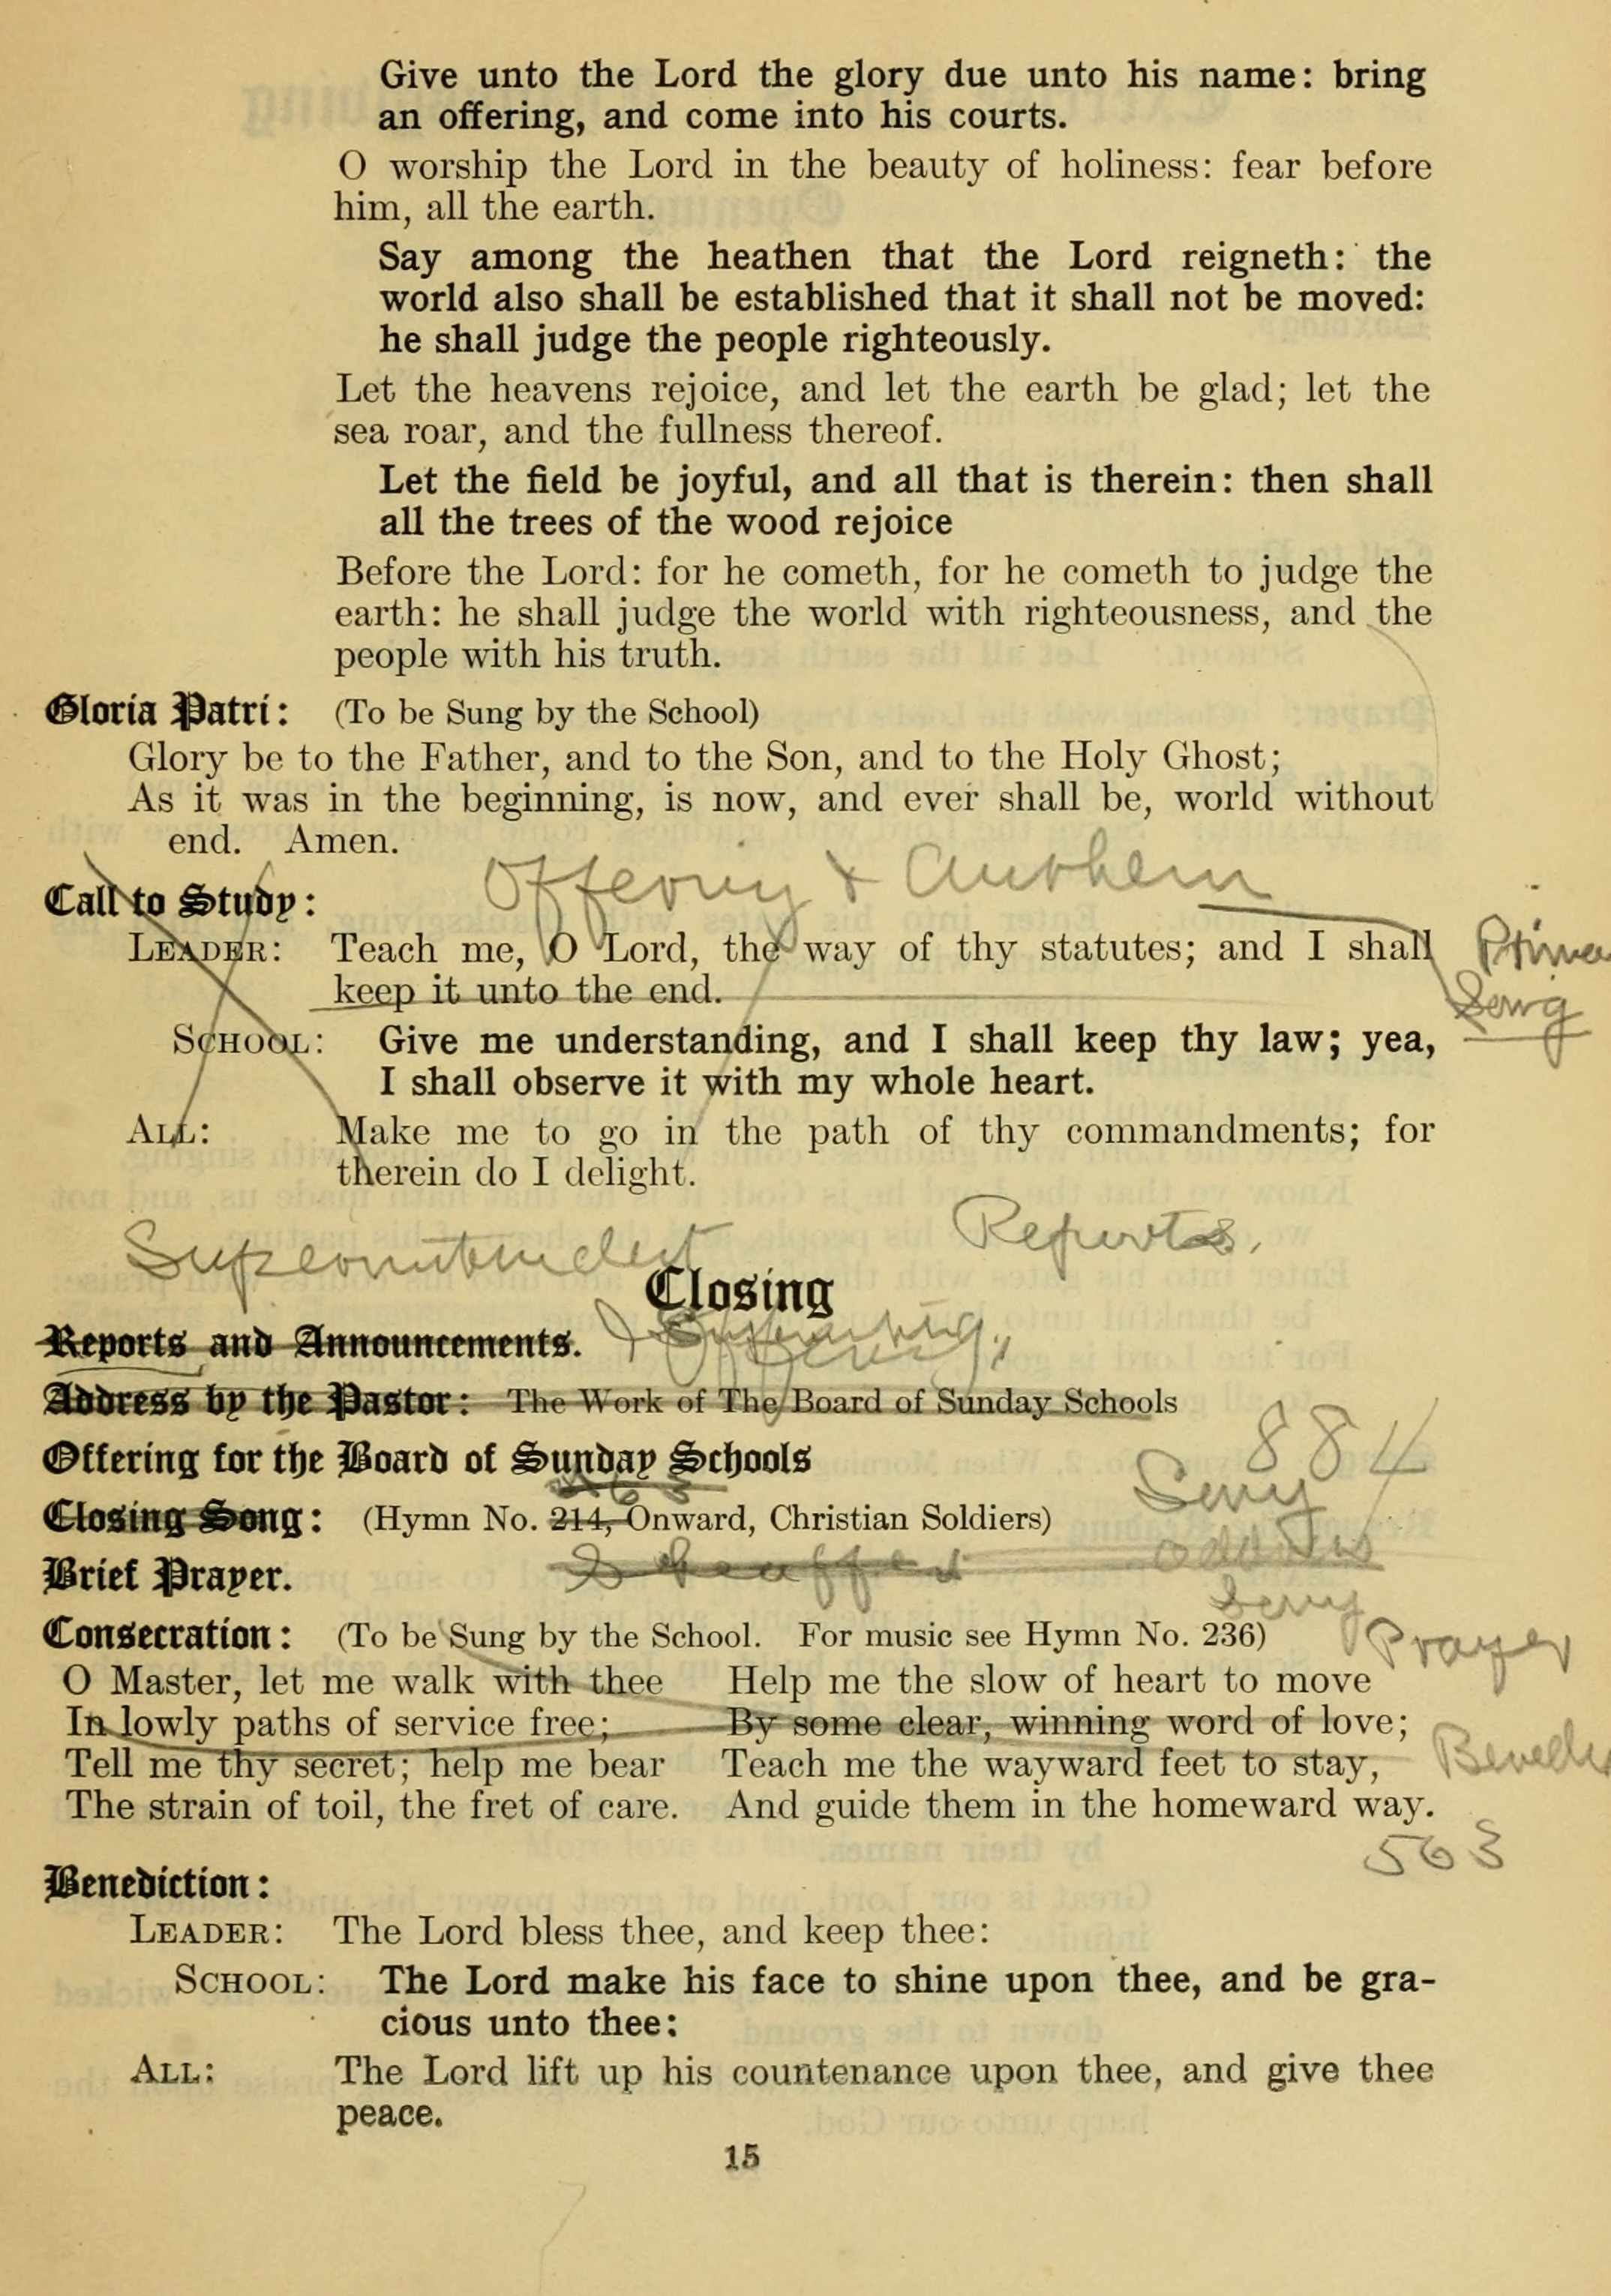 Give unto the Lord the glory due unto his name: bring
an offering, and come into his courts.
O worship the Lord in the beauty of holiness: fear before
him, all the earth.
Say among the heathen that the Lord reigneth: the
world also shall be established that it shall not be moved:
he shall judge the people righteously.
Let the heavens rejoice, and let the earth be glad; let the
sea roar, and the fullness thereof.
Let the field be joyful, and all that is therein: then shall
all the trees of the wood rejoice
Before the Lord: for he cometh, for he cometh to judge the
earth: he shall judge the world with righteousness, and the
people with his truth.
Gloria Patri: (To be Sung by the School)
Glory be to the Father, and to the Son, and to the Holy Ghost;
As it was in the beginning, is now, and ever shall be, world without
end. Amen.
Offering & Anthem
Call to Study:
LEADER: Teach me, O Lord, the way of thy statutes; and I shall
keep it unto the end.
Song
SCHOOL: Give me understanding, and I shall keep thy law; yea,
I shall observe it with my whole heart.
ALL: Make me to go in the path of thy commandments; for
therein do I delight.
Reports.
Closing
Reports and Announcements.
Address by the Pastor: The Work of The Board of Sunday Schools
884
Offering for the Board of Sunday Schools
Song
Closing Song: (Hymn No. 214, Onward, Christian Soldiers)
Brief Prayer.
Song
Consecration: (To be Sung by the School. For music see Hymn No. 236)
Prayer
O Master, let me walk with thee
In lowly paths of service free;
Tell me thy secret; help me bear
The strain of toil, the fret of care.
Help me the slow of heart to move
By some clear, winning word of love;
Teach me the wayward feet to stay,
And guide them in the homeward way.
563
Benediction:
LEADER: The Lord bless thee, and keep thee:
SCHOOL: The Lord make his face to shine upon thee, and be gra-
cious unto thee:
ALL: The Lord lift up his countenance upon thee, and give thee
peace.
15